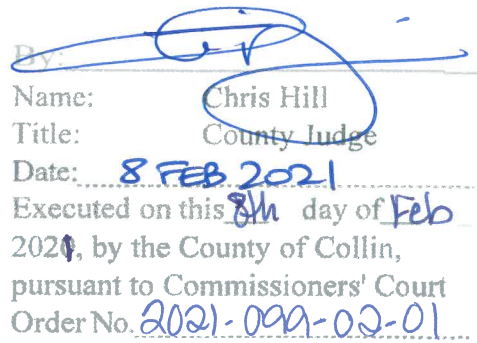 By:
Name: Chris Hill
Title: County Judge
Date: 8 FEB 2021
Executed on this 8th day of Feb
2021, by the County of Collin,
pursuant to Commissioners' Court
Order No. 2021-099-02-01